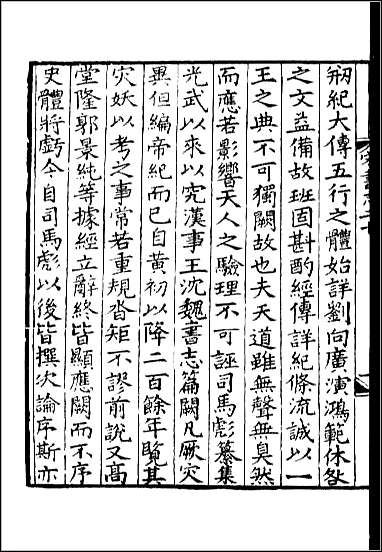 剏紀大傳五行之體始詳劉向廣演鴻範休咎
之文益備故班固斟酌經傳詳紀條流誠以一
王之典不可獨闕故也夫天道雖無聲無臭然
而應若影響天人之驗理不可誣司馬彪纂集
光武以來以究漢事王沈魏書志篇闕凡厥灾
異但編帝紀而已自黃初以降二百餘年覽其
灾妖以考之事常若重規沓矩不謬前說又高
堂隆郭景純等據經立辭終皆顯應闕而不序
史體將虧今自司馬彪以後皆撰次論序斯亦